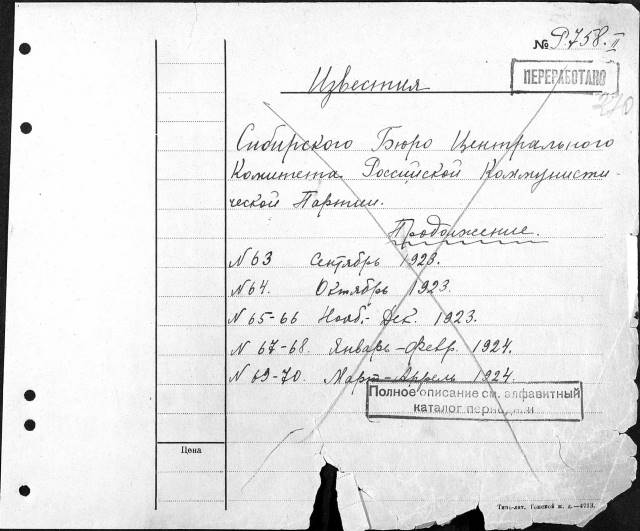 № Р.758.II
ПЕРЕРАБОТАНО
270
Известия
Сибирского Бюро Центрального
Комитета Российской Коммунисти-
ческой Партии.
Продолжение.
N 63 Сентябрь 1923.
N 64. Октябрь 1923.
N 65-66 Нояб.- Дек. 1923.
N 67-68. Январь-Февр. 1924.
N 69-70. Март-Апрель 1924.
Полное описание см. алфавитный
каталог
Цена
Типо-лит. ж. д.—4713.